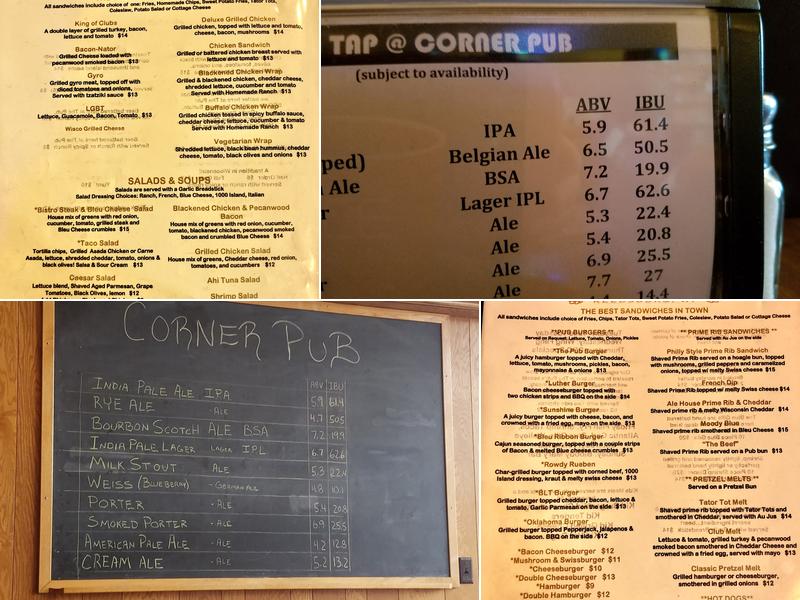 All sandwiches include choice of one: Fries, Homemade Chips, Sweet Potato Fries, Tator Tots,
Coleslaw, Potato Salad or Cottage Cheese
King of Clubs
A double layer of grilled turkey, bacon,
lettuce and tomato $14
Bacon-Nator
Grilled Cheese loaded with
pecanwood smoked bacon $13
Gyro
Grilled gyro meat, topped off with
diced tomatoes and onions.
Served with tzatziki sauce $13
LGBT
Lettuce, Guacamole, Bacon, Tomato $13
Wisco Grilled Cheese
Deluxe Grilled Chicken
Grilled chicken, topped with lettuce and tomato,
cheese, bacon, mushrooms $14
Chicken Sandwich
Grilled or battered chicken breast served with
lettuce and tomato $13
Blackened Chicken Wrap
Grilled & blackened chicken, cheddar cheese,
shredded lettuce, cucumber and tomato
Served with Homemade Ranch $13
Buffalo Chicken Wrap
Grilled chicken tossed in spicy buffalo sauce,
cheddar cheese, lettuce, cucumber & tomato
Served with Homemade Ranch $13
Vegetarian Wrap
Shredded lettuce, black bean hummus, cheddar
cheese, tomato, black olives and onions $13
SALADS & SOUPS
Salads are served with a Garlic Breadstick
Salad Dressing Choices: Ranch, French, Blue Cheese, 1000 Island, Italian
*Bistro Steak & Bleu Cheese Salad
House mix of greens with red onion,
cucumber, tomato, grilled steak and
Bleu Cheese crumbles $15
*Taco Salad
Tortilla chips, Grilled Asada Chicken or Carne
Asada, lettuce, shredded cheddar, tomato, onions &
black olives! Salsa & Sour Cream $13
Caesar Salad
Lettuce blend, Shaved Aged Parmesan, Grape
Tomatoes, Black Olives, lemon $12
Blackened Chicken & Pecanwood
Bacon
House mix of greens with red onion, cucumber,
tomato, blackened chicken, pecanwood smoked
bacon and crumbled Blue Cheese $14
Grilled Chicken Salad
House mix of greens, Cheddar cheese, red onion,
tomatoes, and cucumbers $12
Ahi Tuna Salad
Shrimp Salad
TAP @ CORNER PUB
(subject to availability)
ABV IBU
IPA 5.9 61.4
ped) Belgian Ale 6.5 50.5
Ale BSA 7.2 19.9
r Lager IPL 6.7 62.6
Ale 5.3 22.4
Ale 5.4 20.8
Ale 6.9 25.5
7.7 27
14.4
CORNER PUB
ABV IBU
INDIA PALE ALE IPA 5.9 61.4
RYE ALE - ALE 4.7 50.5
BOURBON SCOTCH ALE BSA 7.2 19.9
INDIA PALE LAGER LAGER IPL 6.7 62.6
MILK STOUT - ALE 5.3 22.4
WEISS (BLUEBERRY) - GERMAN ALE 4.8 10.1
PORTER - ALE 5.4 20.8
SMOKED PORTER - ALE 6.9 25.5
AMERICAN PALE ALE - ALE 4.2 12.8
CREAM ALE - ALE 5.2 13.2
THE BEST SANDWICHES IN TOWN
All sandwiches include choice of Fries, Chips, Tator Tots, Sweet Potato Fries, Coleslaw, Potato Salad or Cottage Cheese
**PUB BURGERS**
Served on Request: Lettuce, Tomato, Onions, Pickles
*The Pub Burger
A juicy hamburger topped with Cheddar,
lettuce, tomato, mushrooms, pickles, bacon,
mayonnaise & onions $13
*Luther Burger
Bacon cheeseburger topped with
two chicken strips and BBQ on the side $14
*Sunshine Burger
A juicy burger topped with cheese, bacon, and
crowned with a fried egg, mayo on the side $13
*Bleu Ribbon Burger
Cajun seasoned burger, topped with a couple strips
of Bacon & melted Blue cheese crumbles $13
*Rowdy Rueben
Char-grilled burger topped with corned beef, 1000
Island dressing, kraut & melty swiss cheese $13
*BLT Burger
Grilled burger topped cheddar, bacon, lettuce &
tomato, Garlic Parmesan on the side $13
*Oklahoma Burger
Grilled burger topped Pepperjack, jalapenos &
bacon. BBQ on the side $12
*Bacon Cheeseburger $12
*Mushroom & Swissburger $11
*Cheeseburger $10
*Double Cheeseburger $13
*Hamburger $9
*Double Hamburger $12
** PRIME RIB SANDWICHES **
Served with Au Jus on the side
Philly Style Prime Rib Sandwich
Shaved Prime rib served on a hoagie bun, topped
with mushrooms, grilled peppers and caramelized
onions, topped w/ melty Swiss cheese $15
French Dip
Shaved Prime Rib topped w/ melty Swiss cheese $14
Ale House Prime Rib & Cheddar
Shaved prime rib & melty Wisconsin Cheddar $14
Moody Blue
Shaved prime rib smothered in Bleu Cheese $15
"The Beef"
Shaved Prime Rib served on a Pub bun $13
**PRETZEL MELTS**
Served on a Pretzel Bun
Tator Tot Melt
Shaved prime rib topped with Tator Tots and
smothered in Cheddar, served with Au Jus $14
Club Melt
Lettuce & tomato, grilled turkey & pecanwood
smoked bacon smothered in Cheddar Cheese and
crowned with a fried egg, served with mayo $13
Classic Pretzel Melt
Grilled hamburger or cheeseburger,
smothered in grilled onions $12
**HOT DOGS**